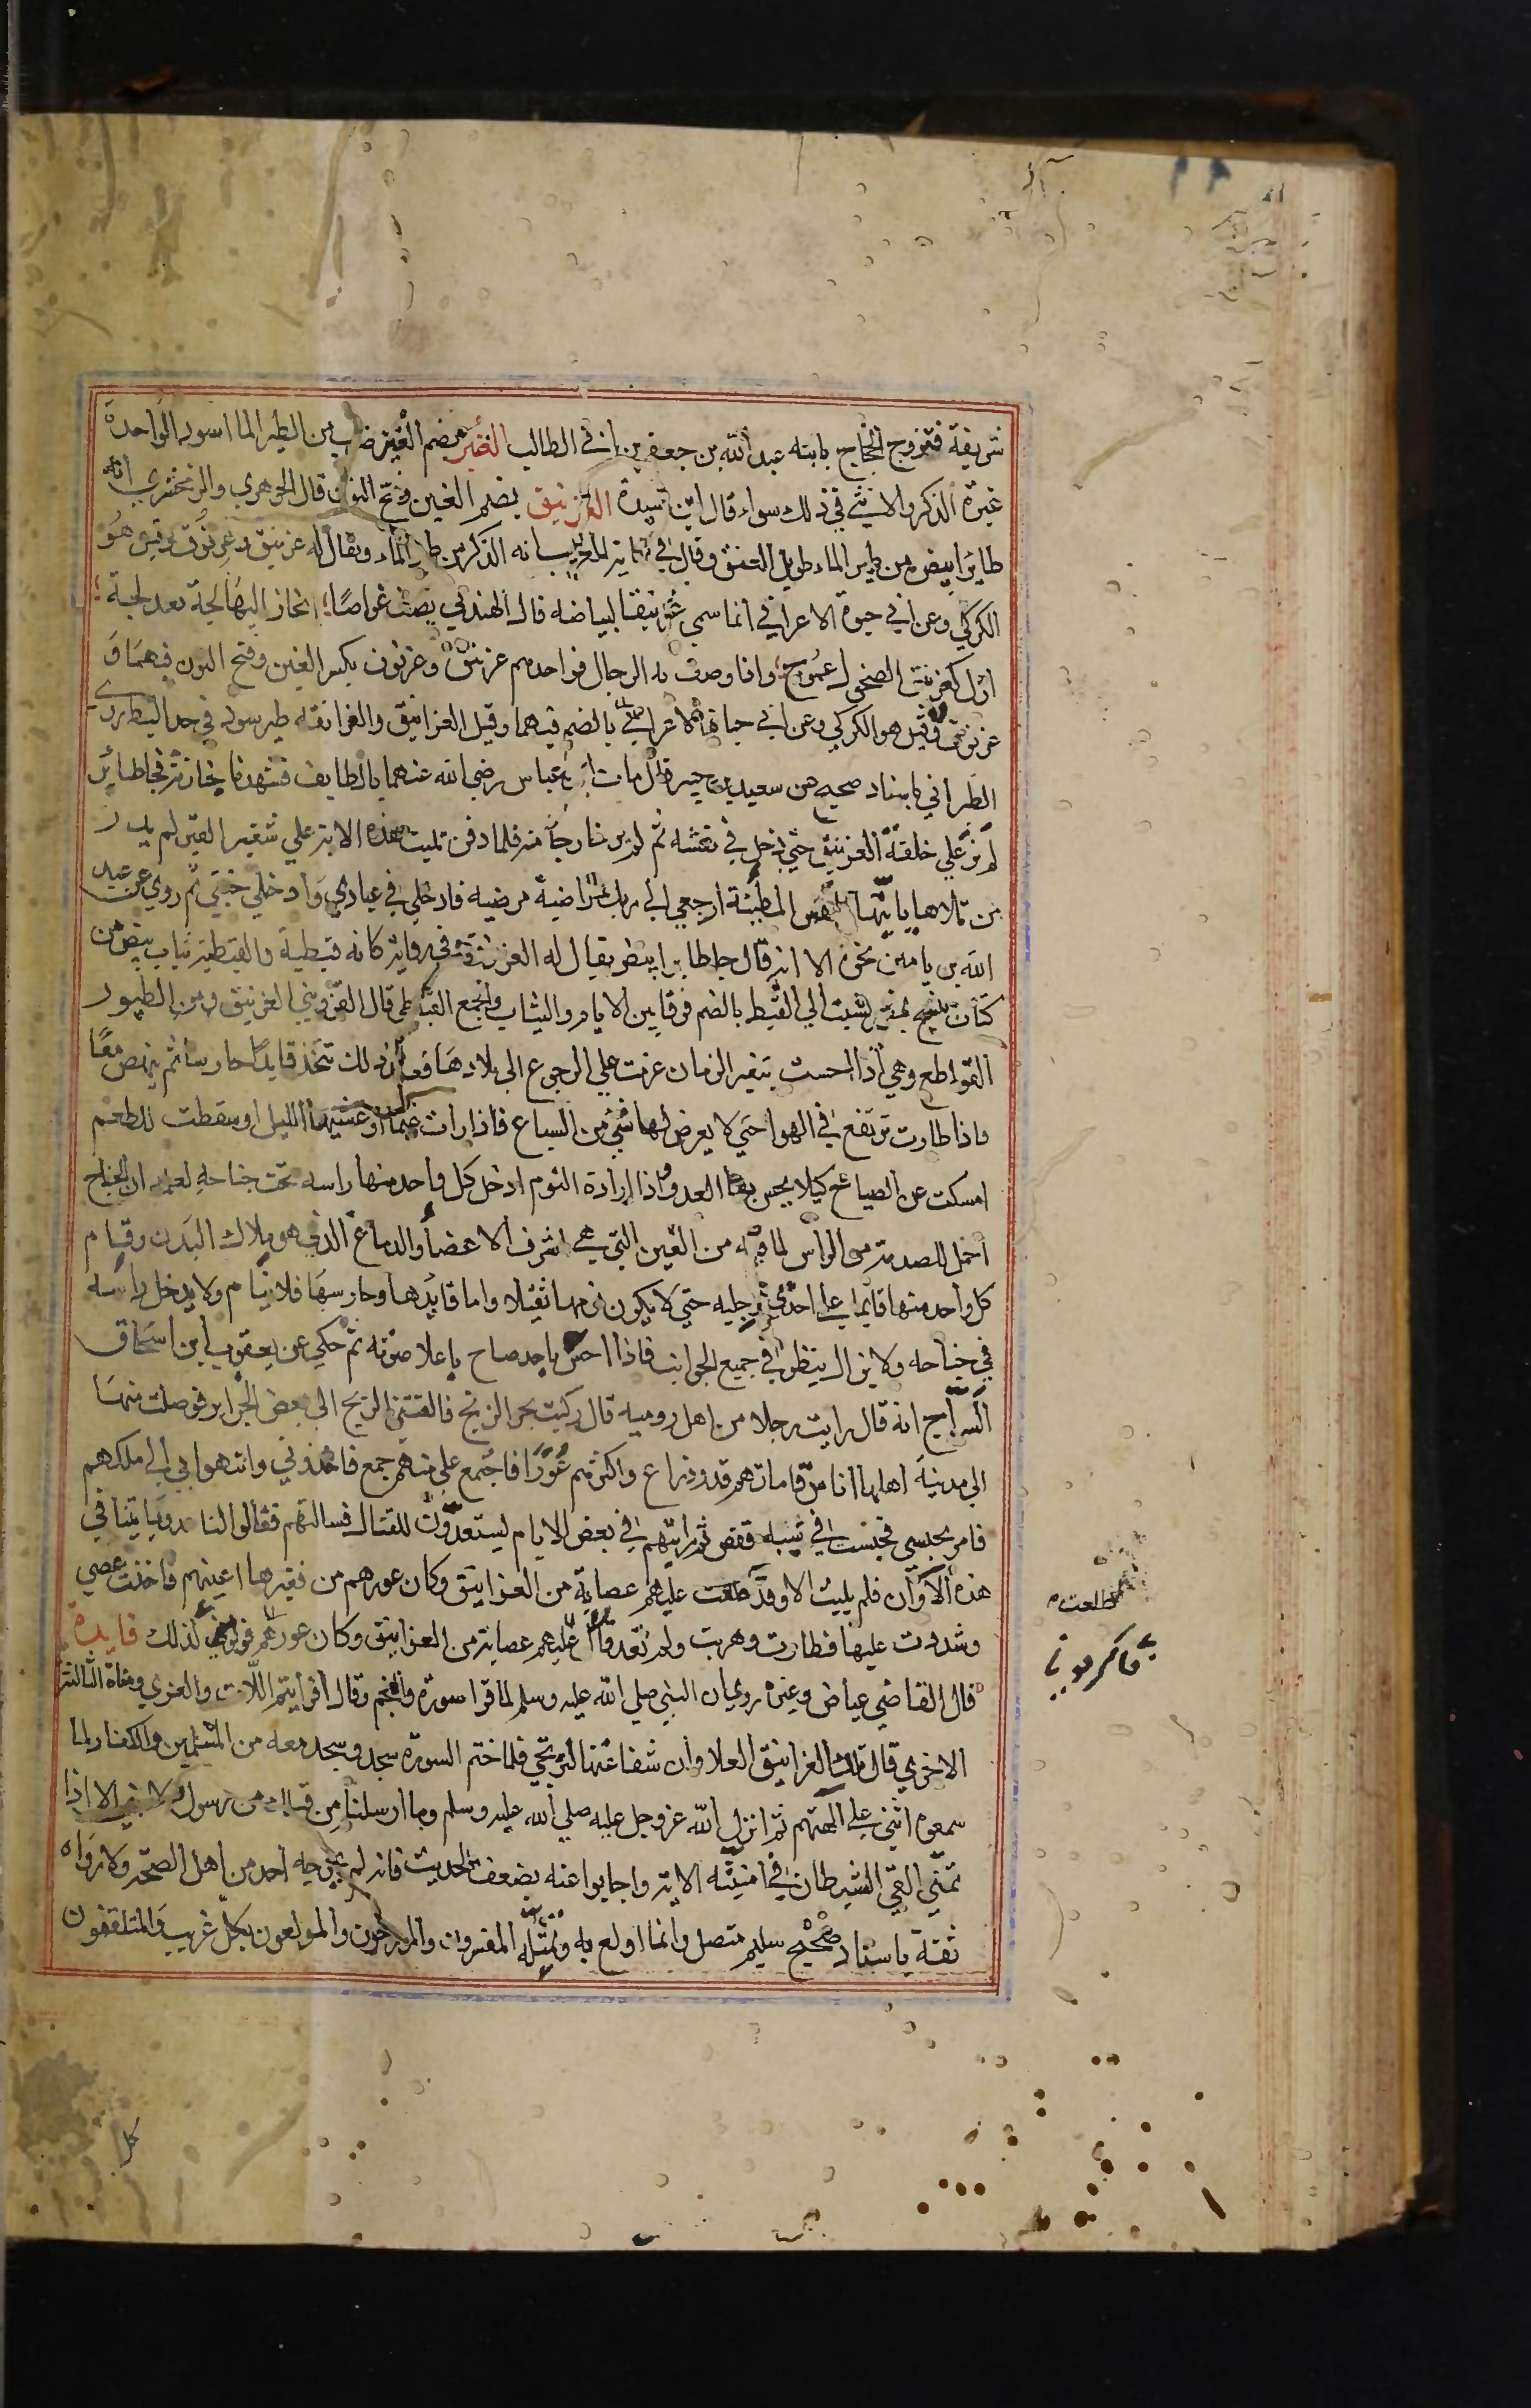 شريفة فتزوج الحجاج بابنة عبد الله بن جعفر بن ابي الطالب الغر بضم الغين ضرب من الطير الما اسود الواحدة
غرة الذكر والانثي في ذلك سواء قال ابن سيدة الغرنيق بضم الغين وفتح النون قال الجوهري والزمخشري انه
طاير ابيض من طير الماء طويل العنق وقال في نهاية الغريب انه الذكر من طير الماء ويقال له غرنيق وغرنوق وقيل هو
الكركي وعن ابي حيوة الاعرابي انما سمي غرنيقا لبياضه قال الهذلي يصف غواصا انحاز اليها لجة بعد لجة
ازل كغرنيق الضحول عموج واذا وصف به الرجال فواحدهم غرنيق وغرنوق بكسر الغين وفتح النون فيهما و
غرنوق وقيل هو الكركي وعن ابي حياة الاعرابي بالضم فيهما وقيل الغرانيق والغرانقة طير سود في حد البط روي
الطبراني باسناد صحيح عن سعيد بن جبير قال مات ابن عباس رضي الله عنهما بالطايف فشهدنا جنازته فجا طائر
لم ير علي خلقة الغرنيق حتي دخل في نعشه ثم لم ير خارجا منه فلما دفن تليت هذه الاية علي شفير القبر لم يدر
من تلاها يا ايتها النفس المطمئنة ارجعي الي ربك راضية مرضية فادخلي في عبادي وادخلي جنتي ثم روي عن عبد
الله بن يامين نحوه الا انه قال جا طاير ابيض يقال له الغرنوق وفي رواية كانه قبطية والقبطية ثياب بيض من
كتان تنسج بمصر نسبت الي القبط بالضم فرقا بين الانام والثياب والجمع القباطي قال القزويني الغرنيق من الطيور
القواطع وهي اذا احست بتغير الزمان عزمت علي الرجوع الي بلادها فعند ذلك تتخذ قايدا حارسا ثم ينهض معا
واذا طارت ترتفع في الهوا حتي لا يعرض لها شئ من السباع فاذا رات غيما او غشيها الليل او سقطت للطعم
امسكت عن الصياح كيلا يحس بها العدو واذا ارادة النوم ادخل كل واحد منها راسه تحت جناحه لعلمه ان الجناح
احمل للصدمة من الراس لما فيه من العين التي هي اشرف الاعضا والدماغ الذي هو ملاك البدن وقيام
كل واحد منها قايما علي احدي رجليه حتي لا يكون نومها ثقيلا واما قايدها وحارسها فلا ينام ولا يدخل راسه
في جناحه ولا يزال ينظر في جميع الجوانب فاذا احس باحد صاح باعلا صوته ثم حكي عن يعقوب ابن اسحاق
السراج انه قال رايت رجلا من اهل رومية قال ركبت بحر الزنج فالقتني الريح الي بعض الجزاير فوصلت منها
الي مدينة اهلها اناس قاماتهم قدر ذراع واكثرهم عورا فاجتمع علي منهم جمع فاخذوني وانتهوا بي الي ملكهم
فامر بحبسي فحبست في شبه قفص ثم رايتهم في بعض الايام يستعدون للقتال فسالتهم فقالوا لنا عدو ياتينا في
هذه الاوان فلم يلبث الا وقد طلعت عليهم عصابة من الغرانيق وكان عورهم من نقرها اعينهم فاخذت عصي
وشددت عليها فطارت وهربت ولم تعد عليهم عصابة من الغرانيق وكان عورهم لذلك فايدة
قال القاضي عياض وغيره روي ان النبي صلي الله عليه وسلم لما قرا سورة والنجم وقال افرايتم اللات والعزي ومناة الثالثة
الاخري قال تلك الغرانيق العلا وان شفاعتها لترتجي فلما ختم السورة سجد وسجد معه من المسلمين والكفار لما
سمعوه اثني علي الهتهم ثم انزل الله عز وجل عليه صلي الله عليه وسلم وما ارسلنا من قبلك من رسول ولا نبي الا اذا
تمني القي الشيطان في امنيته الاية واجابوا عنه بضعف الحديث فانه لم يخرجه احد من اهل الصحة ولا رواه
ثقة باسناد صحيح سليم متصل وانما اولع به وبمثله المفسرون والمورخون والمولعون بكل غريب والمتلقفون
كل